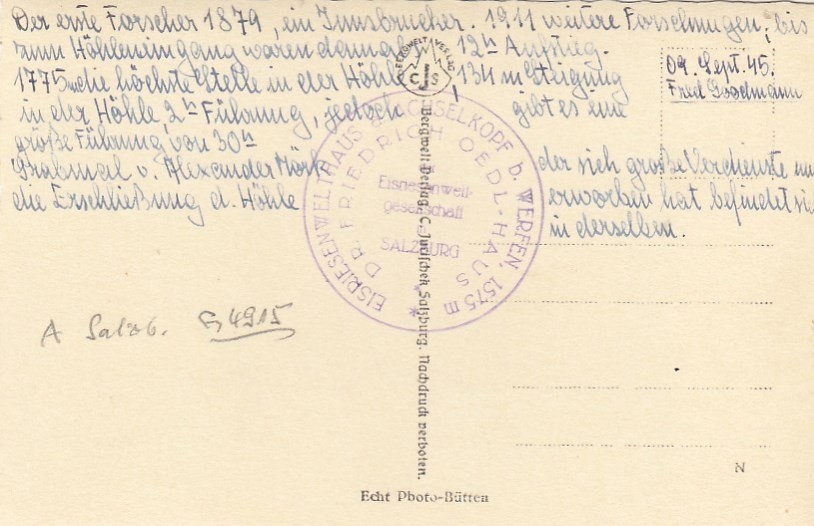 Der erste Forscher 1879, ein Innsbrucher. 1911 weitere Forschungen, bis
zum Höhleneingang waren damals 12h Aufstieg.
1775 die höchste Stelle in der Höhle, 134 m Steigung
in der Höhle 2h Führung, jedoch gibt es eine
große Führung von 30h
Grabmal v. Alexander Mörk der sich große Verdienste um
die Erschließung d. Höhle erworben hat befindet sich
in derselben.
09. Sept. 45.
Fred
BERGWELT VERLAG
C J S
EISRIESENWELTHAUS a. ACHSELKOPF b. WERFEN, 1575 m
DR. FRIEDRICH OEDL-HAUS
Eisriesenwelt-
gesellschaft
SALZBURG
Bergwelt-Verlag C. Jurischek, Salzburg. Nachdruck verboten.
A Salzb. G 4915
N
Echt Photo-Bütten